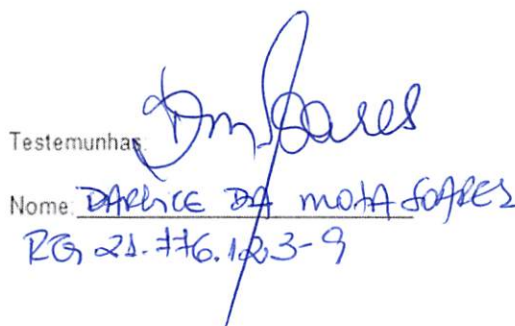 Testemunhas: DmSoares
Nome: DARLICE DA MOTA SOARES
RG 21.776.123-9